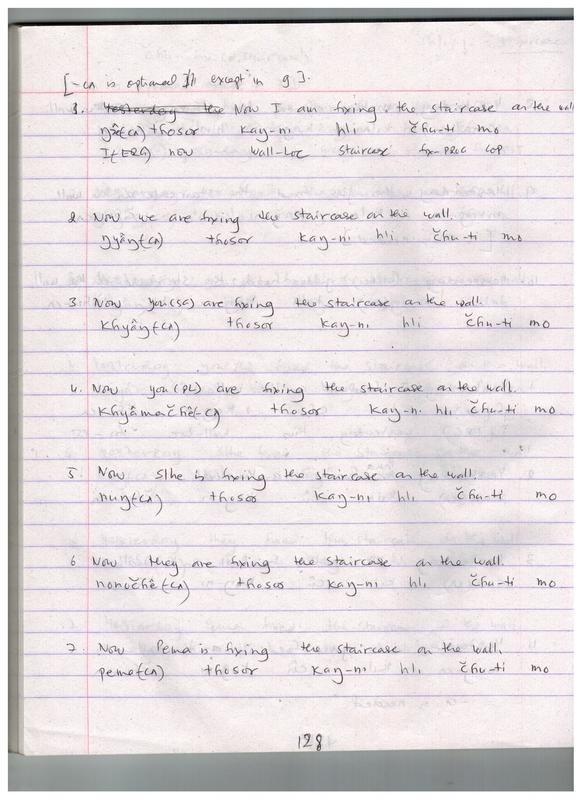 [-cʌ is optional in all except in 9].
1. Yesterday the Now I am fixing the staircase on the wall
ŋʌ̂(cʌ) thosor kaŋ-ni hli čhu-ti mo
I(ERG) now wall-LOC staircase fix-PROG COP
2 Now we are fixing the staircase on the wall.
ŋyâŋ(cʌ) thosor kaŋ-ni hli čhu-ti mo
3 Now you(SG) are fixing the staircase on the wall.
khyâŋ(cʌ) thosor kaŋ-ni hli čhu-ti mo
4. Now you(PL) are fixing the staircase on the wall.
khyâmačhê-cʌ thosor kaŋ-ni hli čhu-ti mo
5 Now S/he is fixing the staircase on the wall.
nuŋ(cʌ) thosor kaŋ-ni hli čhu-ti mo
6 Now they are fixing the staircase on the wall.
nonučhê(cʌ) thosor kaŋ-ni hli čhu-ti mo
7. Now Pema is fixing the staircase on the wall.
peme(cʌ) thosor kaŋ-ni hli čhu-ti mo
128